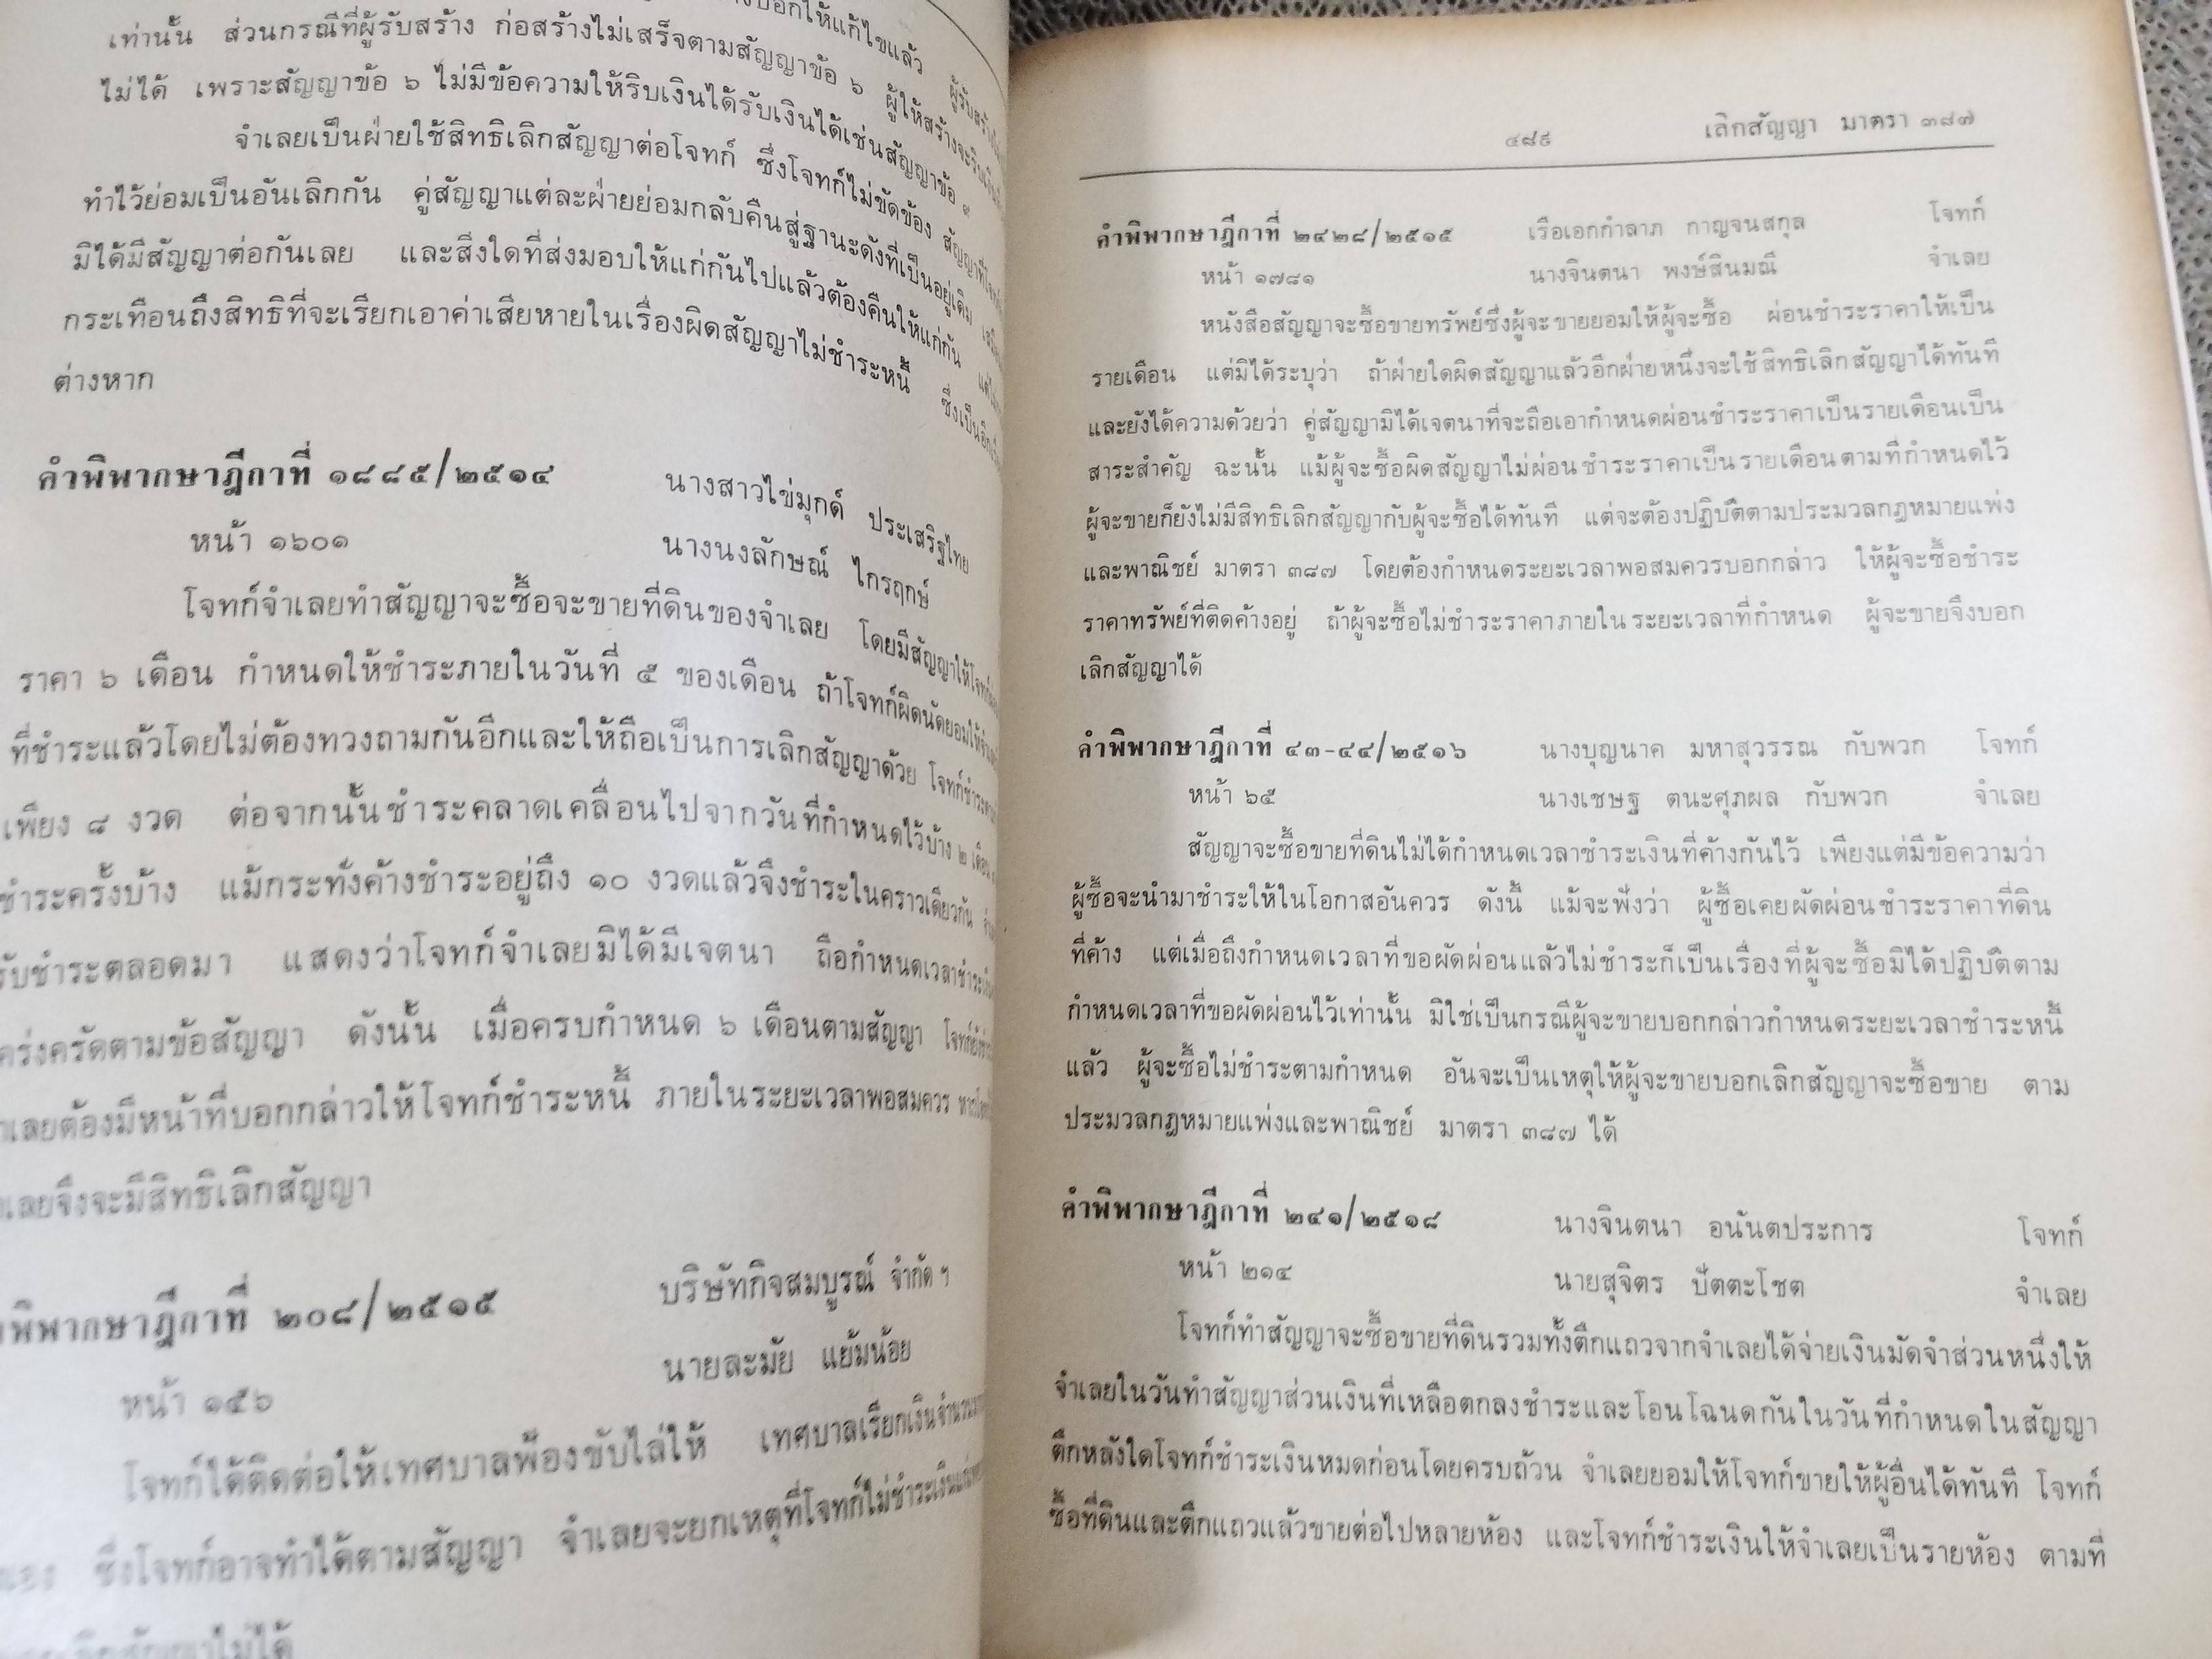 บอกให้แก้ไขแล้ว
เท่านั้น ส่วนกรณีที่ผู้รับสร้าง ก่อสร้างไม่เสร็จตามสัญญาข้อ ๖ ผู้ให้สร้างจะริบ
ไม่ได้ เพราะสัญญาข้อ ๖ ไม่มีข้อความให้ริบเงินได้รับเงินได้เช่นสัญญาข้อ ๙
จำเลยเป็นฝ่ายใช้สิทธิเลิกสัญญาต่อโจทก์ ซึ่งโจทก์ไม่ขัดข้อง สัญญาที่
ทำไว้ย่อมเป็นอันเลิกกัน คู่สัญญาแต่ละฝ่ายย่อมกลับคืนสู่ฐานะดังที่เป็นอยู่เดิม
มิได้มีสัญญาต่อกันเลย และสิ่งใดที่ส่งมอบให้แก่กันไปแล้วต้องคืนให้แก่กัน
กระเทือนถึงสิทธิที่จะเรียกเอาค่าเสียหายในเรื่องผิดสัญญาไม่ชำระหนี้ ซึ่งเป็น
ต่างหาก
คำพิพากษาฎีกาที่ ๑๘๘๕/๒๕๑๔ นางสาวไข่มุกด์ ประเสริฐไทย
หน้า ๑๖๐๑ นางนงลักษณ์ ไกรฤกษ์
โจทก์จำเลยทำสัญญาจะซื้อจะขายที่ดินของจำเลย โดยมีสัญญาให้
ราคา ๖ เดือน กำหนดให้ชำระภายในวันที่ ๕ ของเดือน ถ้าโจทก์ผิดนัดยอมให้
ที่ชำระแล้วโดยไม่ต้องทวงถามกันอีกและให้ถือเป็นการเลิกสัญญาด้วย โจทก์ชำระ
เพียง ๘ งวด ต่อจากนั้นชำระคลาดเคลื่อนไปจากวันที่กำหนดไว้บ้าง ๒ เดือน
ชำระครั้งบ้าง แม้กระทั่งค้างชำระอยู่ถึง ๑๐ งวดแล้วจึงชำระในคราวเดียวกัน
รับชำระตลอดมา แสดงว่าโจทก์จำเลยมิได้มีเจตนา ถือกำหนดเวลา
คร่งครัดตามข้อสัญญา ดังนั้น เมื่อครบกำหนด ๖ เดือนตามสัญญา
เลยต้องมีหน้าที่บอกกล่าวให้โจทก์ชำระหนี้ ภายในระยะเวลาพอสมควร
เลยจึงจะมีสิทธิเลิกสัญญา
พิพากษาฎีกาที่ ๒๐๘/๒๕๑๕ บริษัทกิจสมบูรณ์ จำกัด ฯ
หน้า ๑๕๖ นายละมัย แย้มน้อย
โจทก์ได้ติดต่อให้เทศบาลฟ้องขับไล่ให้ เทศบาลเรียกเงิน
ซึ่งโจทก์อาจทำได้ตามสัญญา จำเลยจะยกเหตุที่โจทก์ไม่ชำระเงิน
๔๘๙ เลิกสัญญา มาตรา ๓๘๗
คำพิพากษาฎีกาที่ ๒๔๒๘/๒๕๑๕ เรือเอกกำลาภ กาญจนสกุล โจทก์
หน้า ๑๗๘๑ นางจินตนา พงษ์สินมณี จำเลย
หนังสือสัญญาจะซื้อขายทรัพย์ซึ่งผู้จะขายยอมให้ผู้จะซื้อ ผ่อนชำระราคาให้เป็น
รายเดือน แต่มิได้ระบุว่า ถ้าฝ่ายใดผิดสัญญาแล้วอีกฝ่ายหนึ่งจะใช้สิทธิเลิกสัญญาได้ทันที
และยังได้ความด้วยว่า คู่สัญญามิได้เจตนาที่จะถือเอากำหนดผ่อนชำระราคาเป็นรายเดือนเป็น
สาระสำคัญ ฉะนั้น แม้ผู้จะซื้อผิดสัญญาไม่ผ่อนชำระราคาเป็นรายเดือนตามที่กำหนดไว้
ผู้จะขายก็ยังไม่มีสิทธิเลิกสัญญากับผู้จะซื้อได้ทันที แต่จะต้องปฏิบัติตามประมวลกฎหมายแพ่ง
และพาณิชย์ มาตรา ๓๘๗ โดยต้องกำหนดระยะเวลาพอสมควรบอกกล่าว ให้ผู้จะซื้อชำระ
ราคาทรัพย์ที่ติดค้างอยู่ ถ้าผู้จะซื้อไม่ชำระราคาภายในระยะเวลาที่กำหนด ผู้จะขายจึงบอก
เลิกสัญญาได้
คำพิพากษาฎีกาที่ ๔๓-๔๔/๒๕๑๖ นางบุญนาค มหาสุวรรณ กับพวก โจทก์
หน้า ๖๕ นางเชษฐ ตนะศุภผล กับพวก จำเลย
สัญญาจะซื้อขายที่ดินไม่ได้กำหนดเวลาชำระเงินที่ค้างกันไว้ เพียงแต่มีข้อความว่า
ผู้ซื้อจะนำมาชำระให้ในโอกาสอันควร ดังนี้ แม้จะฟังว่า ผู้ซื้อเคยผัดผ่อนชำระราคาที่ดิน
ที่ค้าง แต่เมื่อถึงกำหนดเวลาที่ขอผัดผ่อนแล้วไม่ชำระก็เป็นเรื่องที่ผู้จะซื้อมิได้ปฏิบัติตาม
กำหนดเวลาที่ขอผัดผ่อนไว้เท่านั้น มิใช่เป็นกรณีผู้จะขายบอกกล่าวกำหนดระยะเวลาชำระหนี้
แล้ว ผู้จะซื้อไม่ชำระตามกำหนด อันจะเป็นเหตุให้ผู้จะขายบอกเลิกสัญญาจะซื้อขาย ตาม
ประมวลกฎหมายแพ่งและพาณิชย์ มาตรา ๓๘๗ ได้
คำพิพากษาฎีกาที่ ๒๔๑/๒๕๑๘ นางจินตนา อนันตประการ โจทก์
หน้า ๒๑๔ นายสุจิตร ปัตตะโชต จำเลย
โจทก์ทำสัญญาจะซื้อขายที่ดินรวมทั้งตึกแถวจากจำเลยได้จ่ายเงินมัดจำส่วนหนึ่งให้
จำเลยในวันทำสัญญาส่วนเงินที่เหลือตกลงชำระและโอนโฉนดกันในวันที่กำหนดในสัญญา
ตึกหลังใดโจทก์ชำระเงินหมดก่อนโดยครบถ้วน จำเลยยอมให้โจทก์ขายให้ผู้อื่นได้ทันที โจทก์
ซื้อที่ดินและตึกแถวแล้วขายต่อไปหลายห้อง และโจทก์ชำระเงินให้จำเลยเป็นรายห้อง ตามที่